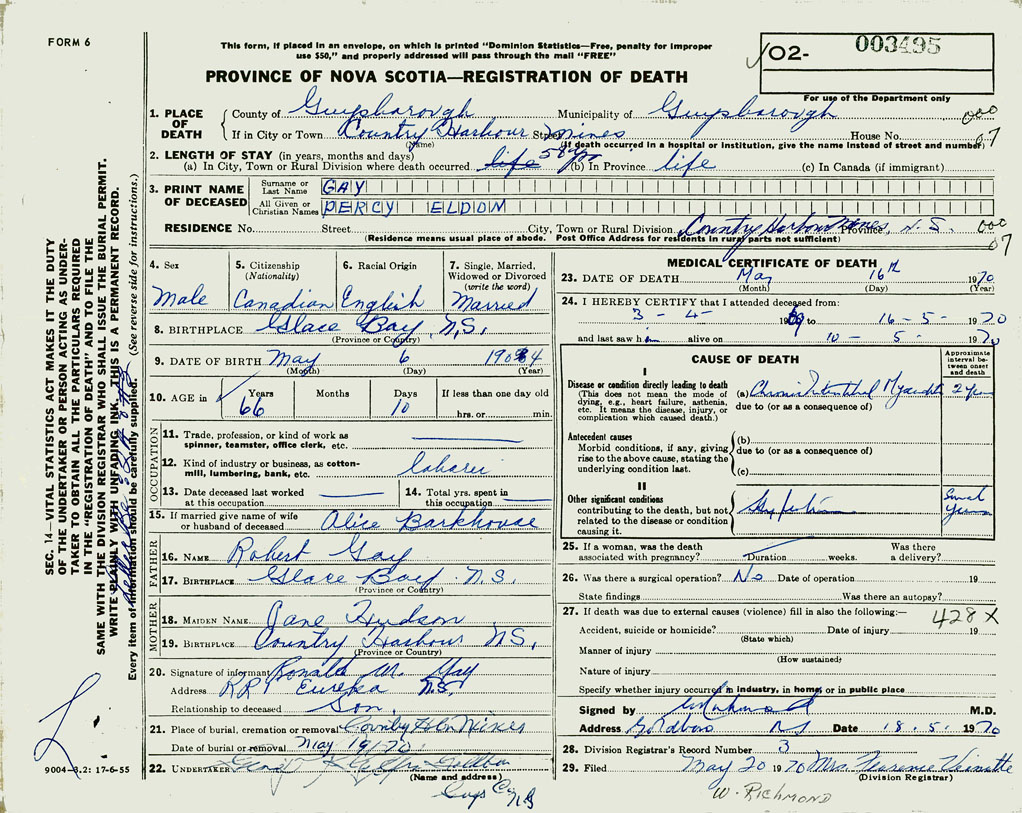 FORM 6
This form, if placed in an envelope, on which is printed "Dominion Statistics—Free, penalty for improper
use $50," and properly addressed will pass through the mail "FREE"
PROVINCE OF NOVA SCOTIA—REGISTRATION OF DEATH
02- 003495
For use of the Department only
1. PLACE OF DEATH
County of Guysborough Municipality of Guysborough 000
If in City or Town Country Harbour Street Mines House No. 07
(Name) (If death occurred in a hospital or institution, give the name instead of street and number)
2. LENGTH OF STAY (in years, months and days)
(a) In City, Town or Rural Division where death occurred life (b) In Province life (c) In Canada (if immigrant)
3. PRINT NAME OF DECEASED
Surname or Last Name GAY
All Given or Christian Names PERCY ELDON
RESIDENCE No. Street City, Town or Rural Division Country Harbour Mines Province, N.S. 000
(Residence means usual place of abode. Post Office Address for residents in rural parts not sufficient) 07
4. Sex Male
5. Citizenship (Nationality) Canadian
6. Racial Origin English
7. Single, Married, Widowed or Divorced (write the word) Married
8. BIRTHPLACE Glace Bay N.S.
(Province or Country)
9. DATE OF BIRTH May 6 1904
(Month) (Day) (Year)
10. AGE in Years 66 Months Days 10 If less than one day old hrs. or min.
OCCUPATION
11. Trade, profession, or kind of work as spinner, teamster, office clerk, etc.
12. Kind of industry or business, as cotton-mill, lumbering, bank, etc.
13. Date deceased last worked at this occupation
14. Total yrs. spent in this occupation
15. If married give name of wife or husband of deceased Alice Barkhouse
FATHER
16. NAME Robert Gay
17. BIRTHPLACE Glace Bay N.S.
(Province or Country)
MOTHER
18. MAIDEN NAME Jane Hudson
19. BIRTHPLACE Country Harbour N.S.
(Province or Country)
20. Signature of informant Ronald W. Gay
Address RR1 Eureka N.S.
Relationship to deceased Son
21. Place of burial, cremation or removal Country Hbr Mines
Date of burial or removal May 19/70
22. UNDERTAKER
(Name and address)
Guys Co N.S.
MEDICAL CERTIFICATE OF DEATH
23. DATE OF DEATH May 16th 1970
(Month) (Day) (Year)
24. I HEREBY CERTIFY that I attended deceased from:
3 - 4 - 19 to 16-5-1970
and last saw him alive on 10 - 5 - 1970
CAUSE OF DEATH
Approximate interval between onset and death
I
Disease or condition directly leading to death
(This does not mean the mode of dying, e.g., heart failure, asthenia, etc. It means the disease, injury, or complication which caused death.)
(a) Chronic
due to (or as a consequence of)
Antecedent causes
Morbid conditions, if any, giving rise to the above cause, stating the underlying condition last.
(b)
due to (or as a consequence of)
(c)
II
Other significant conditions
contributing to the death, but not related to the disease or condition causing it.
25. If a woman, was the death associated with pregnancy? Duration weeks. Was there a delivery?
26. Was there a surgical operation? No Date of operation 19
State findings Was there an autopsy?
27. If death was due to external causes (violence) fill in also the following:— 428 X
Accident, suicide or homicide? Date of injury 19
(State which)
Manner of injury
(How sustained)
Nature of injury
Specify whether injury occurred in industry, in home, or in public place
Signed by M.D.
Address Goldboro N S Date 18.5.1970
28. Division Registrar's Record Number 3
29. Filed May 20 1970 Mrs.
(Division Registrar)
W. RICHMOND
SEC. 14—VITAL STATISTICS ACT MAKES IT THE DUTY
OF THE UNDERTAKER OR PERSON ACTING AS UNDER-
TAKER TO OBTAIN ALL THE PARTICULARS REQUIRED
IN THE "REGISTRATION OF DEATH" AND TO FILE THE
SAME WITH THE DIVISION REGISTRAR WHO SHALL ISSUE THE BURIAL PERMIT.
WRITE PLAINLY WITH UNFADING INK. THIS IS A PERMANENT RECORD.
Every item of information should be carefully supplied. (See reverse side for instructions.)
9004-3.2: 17-6-55